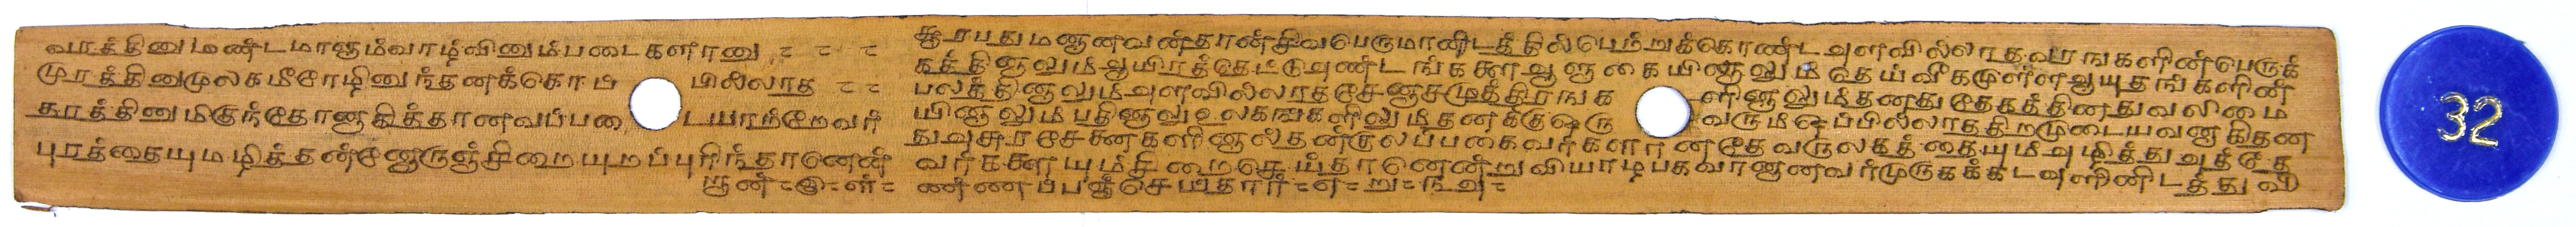 வரத்தினுமண்டமாளும்வாழ்வினும்படைகளானு - - -
முரத்தினுமுலகமீரேழினுந்தனக்கொப் பில்லாத - -
தரத்தினுமிகுந்தோனாகித்தானவப்படை டயாற்றேவர்
புரத்தையுமழித்தன்னோருஞ்சிறையுறப்புரிந்தானென்
சூரபதுமனானவன்தான்சிவபெருமானிடத்தில்பெற்றுக்கொண்டஅளவில்லாதவரங்களின்பெருக்
கத்தினாலும்ஆயிரத்தெட்டுஅண்டங்களைஆளுகையினாலும்தெய்வீகமுள்ளஆயுதங்களின்
பலத்தினாலும்அளவில்லாதசேனாசமுத்திரங்க ளினாலும்தனதுதேகத்தினதுவலிமை
யினாலும்பதினாலுஉலகங்களிலும்தனக்குஒரு வரும்ஒப்பில்லாததிறமுடையவனாகிதன
துஅசுரசேனைகளினால்தன்குலப்பகைவர்களானதேவருலகத்தையும்அழித்துஅத்தே
வர்களையும்சிறைசெய்தானென்றுவியாழபகவானானவர்முருகக்கடவுளினிடத்துவி
ண்ணப்பஞ்செய்தார்